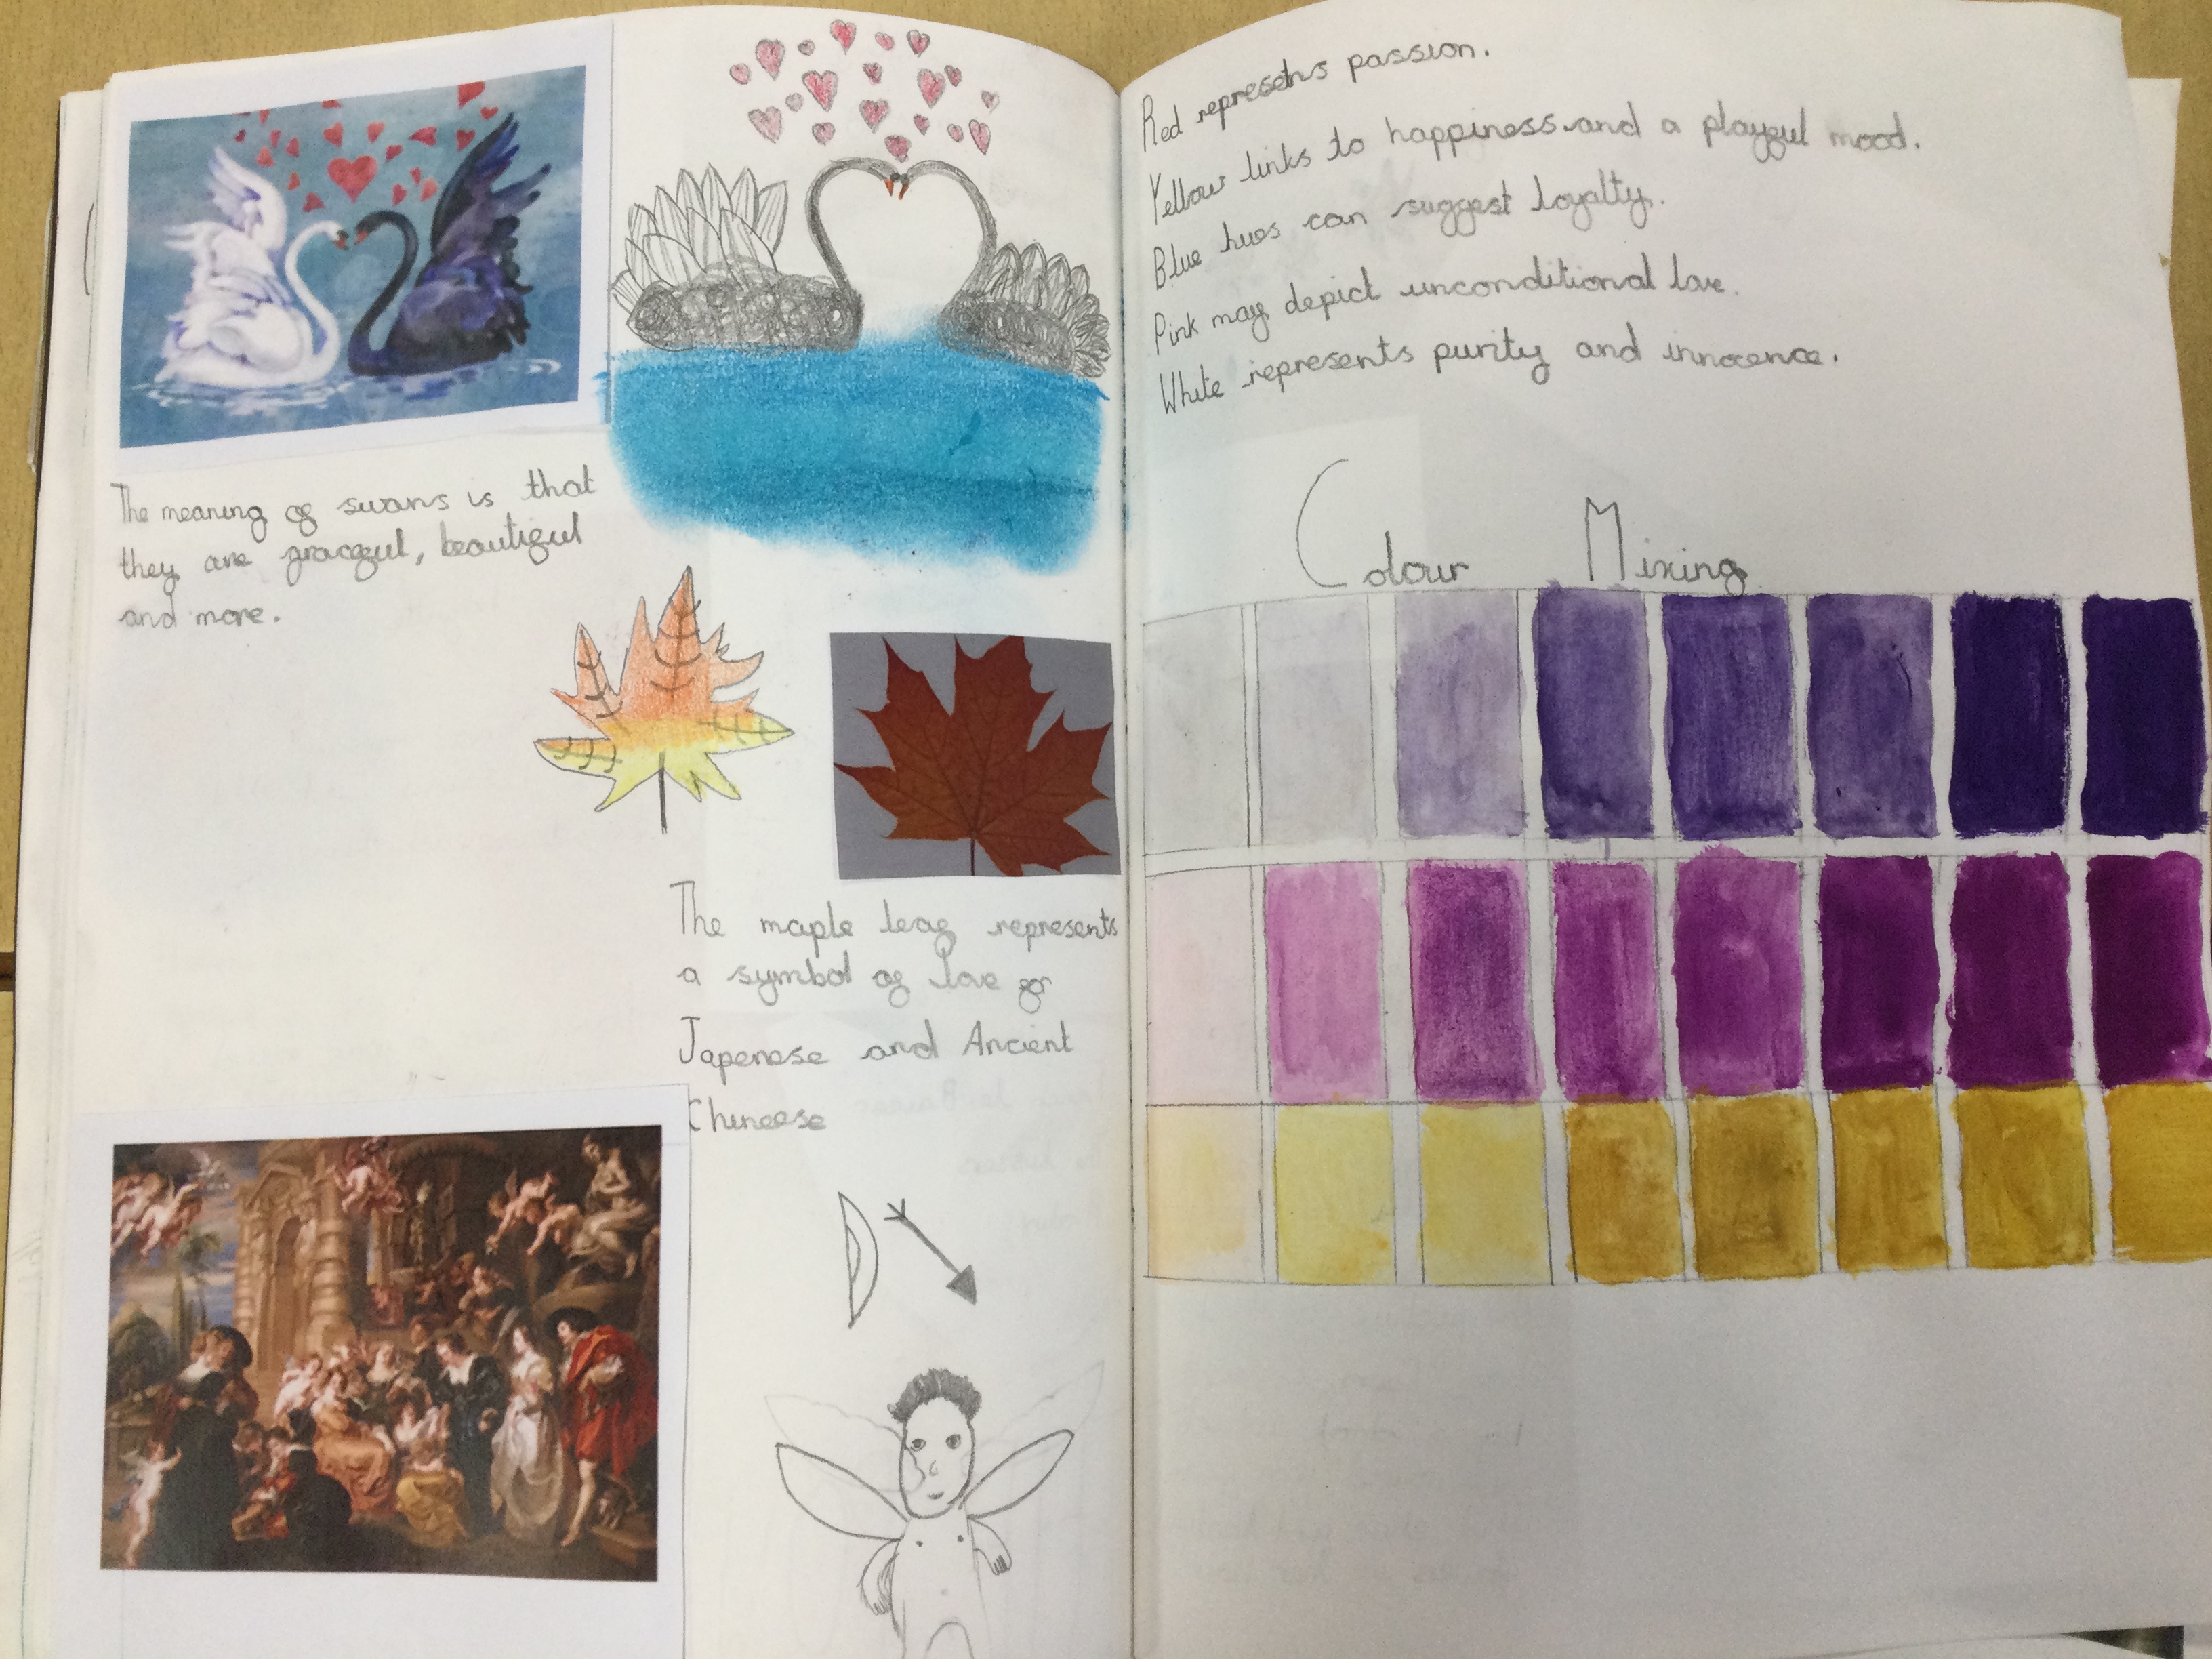 The meaning of swans is that
they are graceful, beautiful
and more.
The maple leaf represents
a symbol of love for
Japenese and Ancient
Chineese
Red represetns passion.
Yellow links to happiness and a playful mood.
Blue hues can suggest loyalty.
Pink may depict unconditional love.
White represents purity and innocence.
Colour Mixing